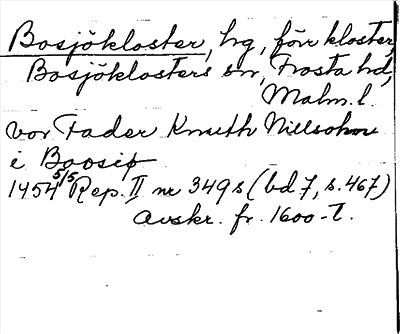 Bosjökloster, hg, förr kloster,
Bosjöklosters sn, Frosta hd,
Malm. l.
vor Fader Knuth Nielsohn
i Boosiø
1454 5/5 Rep. II nr 349 s (bd 7, s. 467)
avskr. fr. 1600-t.